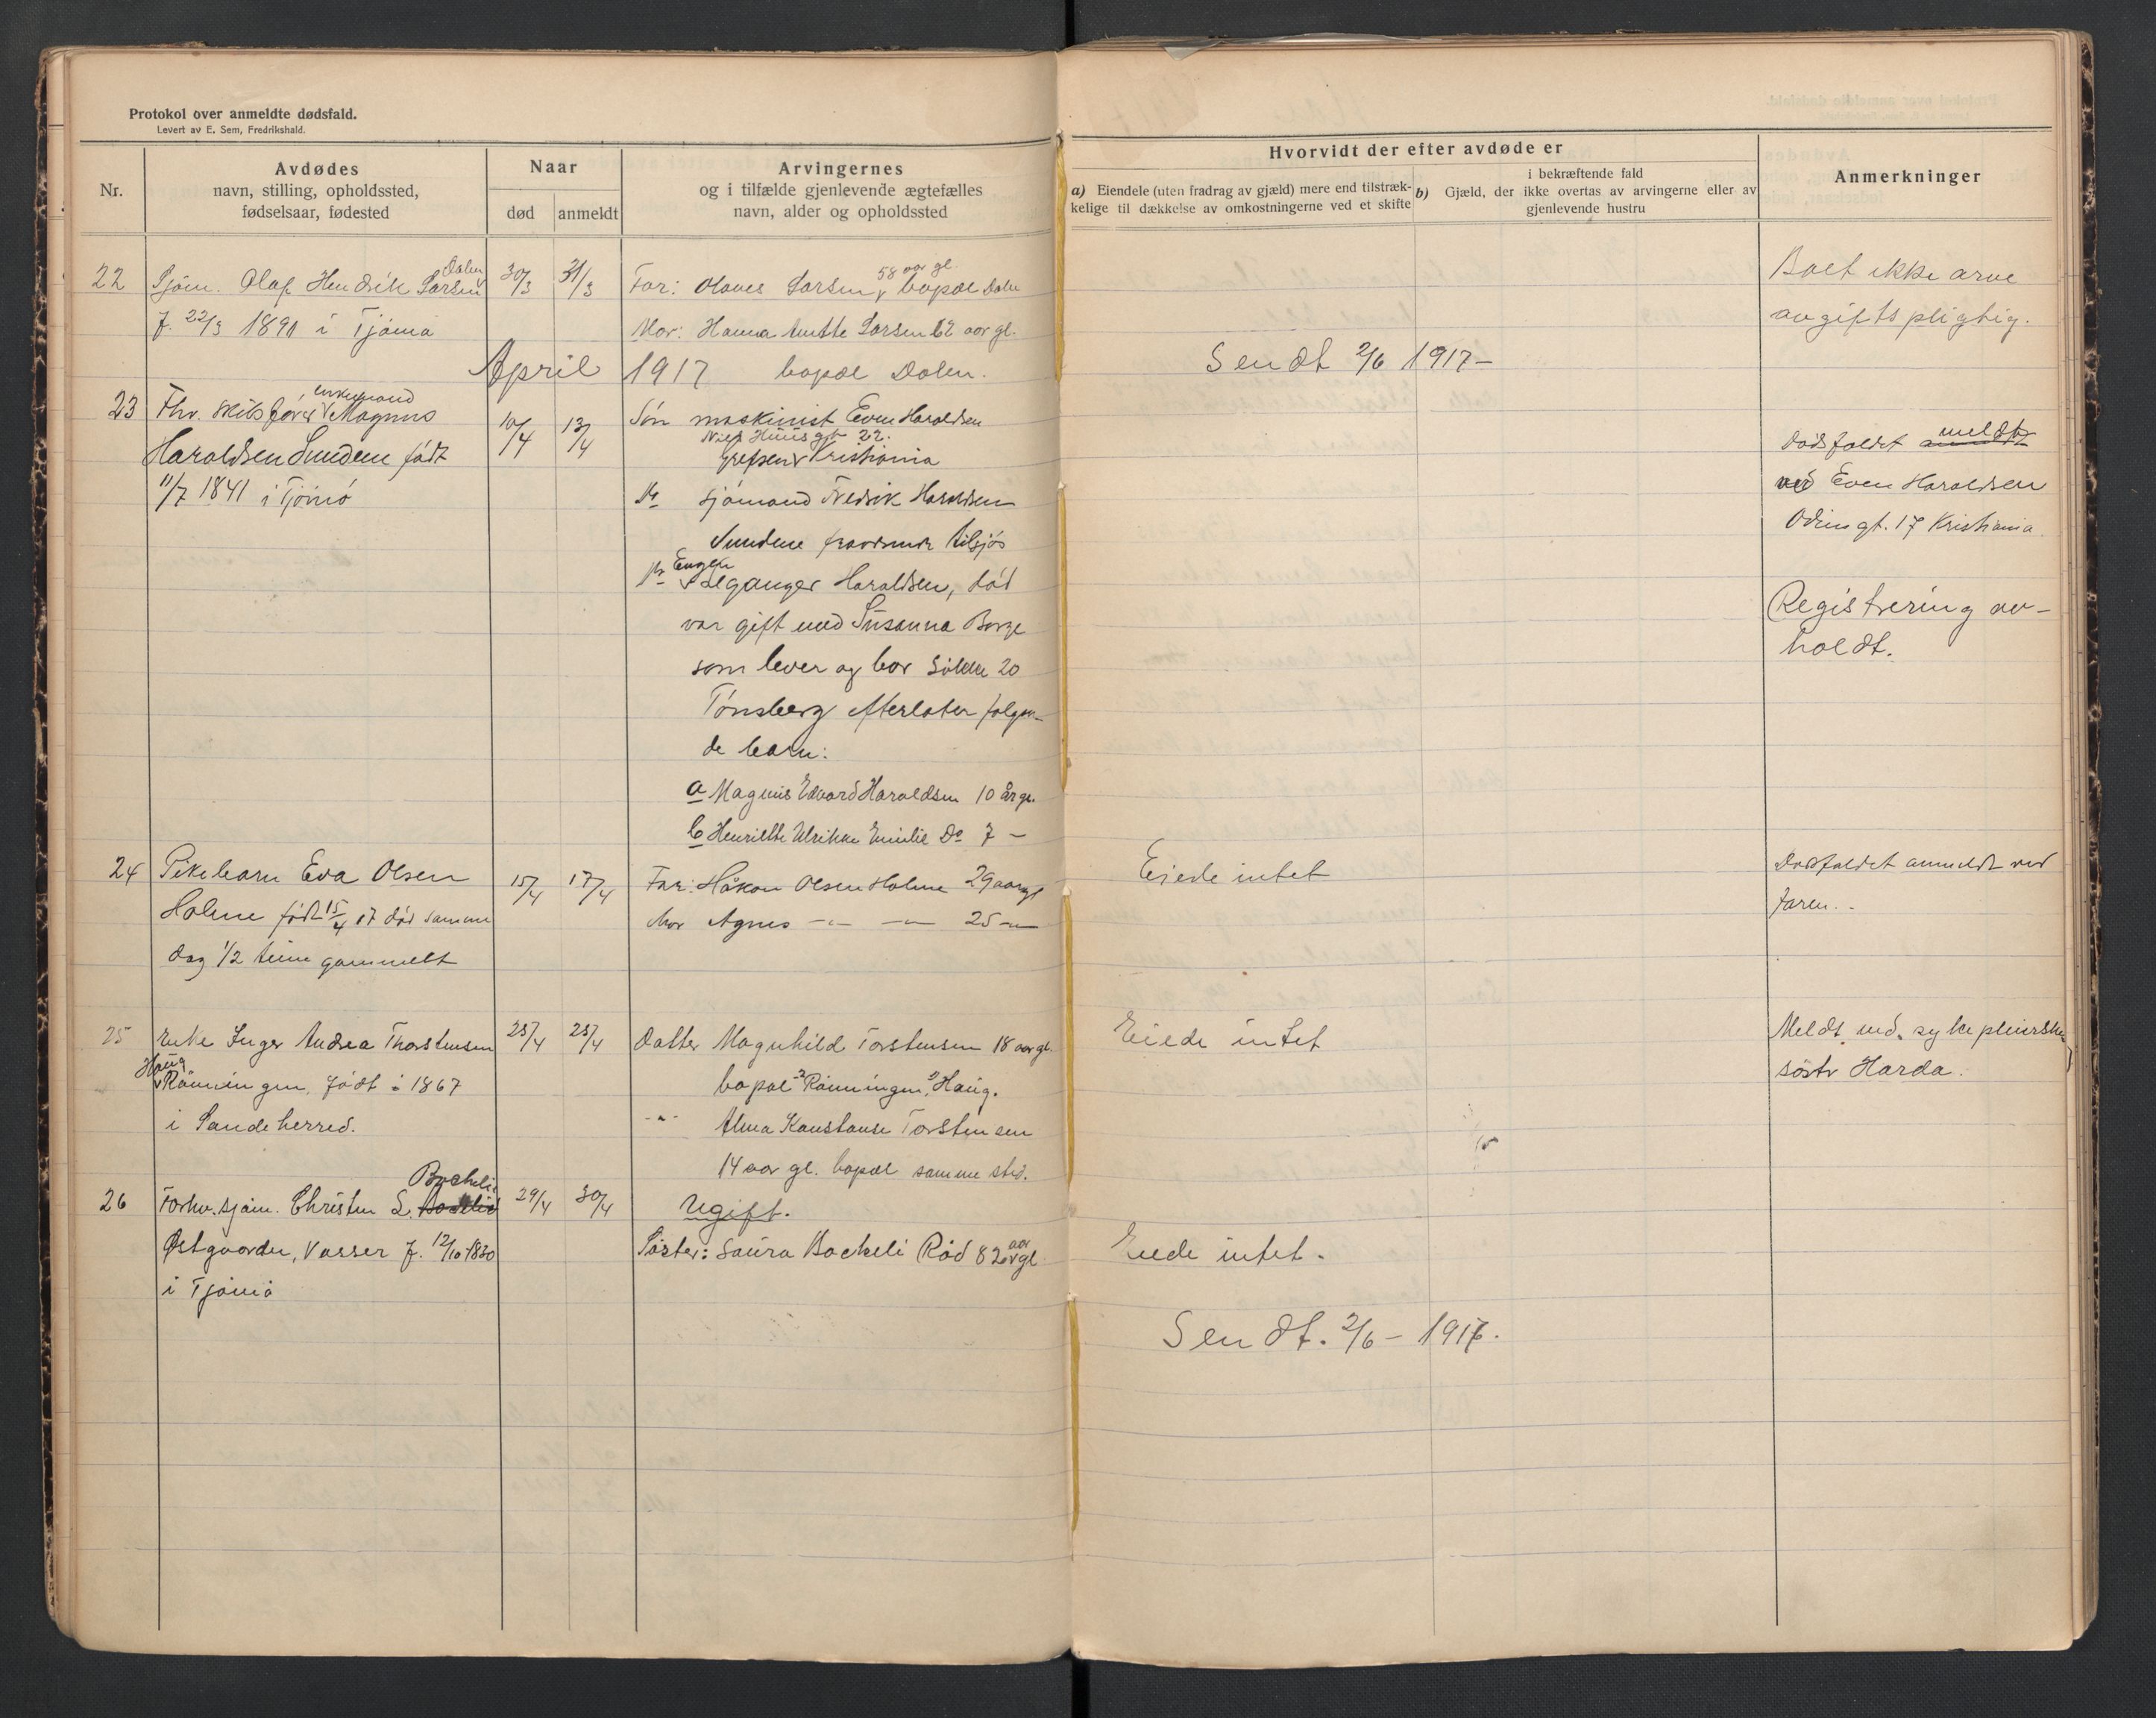 Protokol over anmeldte dødsfald.
Levert av E. Sem, Fredrikshald.
Nr.
Avdødes
navn, stilling, opholdssted,
fødselsaar, fødested
Naar
død
anmeldt
Arvingernes
og i tilfælde gjenlevende ægtefælles
navn, alder og opholdssted
Hvorvidt der efter avdøde er
a) Eiendele (uten fradrag av gjæld) mere end tilstræk-
kelige til dækkelse av omkostningerne ved et skifte
b) Gjæld, der ikke overtas av arvingerne eller av
i bekræftende fald
gjenlevende hustru
Anmerkninger
22 Sjøm. Olaf Hendrik Larsen Dalen 30/3 31/3 Far: Olaves Larsen 58 aar gl. bopæl Dalen
f. 22/3 1891 i Tjømø Mor: Hanna Larsen 62 aar gl.
bopæl Dalen.
Boet ikke arve
avgifts pligtig.
April 1917
Sendt 2/6 1917 –
23 Fhv. skibsfører enkemand Magnus 10/4 13/4 Søn maskinist Even Haraldsen
Niels Huus gt 22.
Haraldsen Sundene født Grefsen Kristiania
11/7 1841 i Tjømø
Do sjømand Fredrik Haraldsen
Sundene fraværende tilsjøs
Do Eugen Leganger Haraldsen, død
var gift med Susanna Borge
som lever og bor 20
Tønsberg efterlater følgen-
de barn:
a Magnus Edvard Haraldsen 10 år gl.
b Henriette Ulrikke Emilie Do 7 –
Dødsfaldet meldt
ved Even Haraldsen
Odins gt. 17 Kristiania
Registrering av-
holdt.
24 Pikebarn Eva Olsen 15/4 17/4 Far: Håkon Olsen Holme 29 aar gl
Holme født 15/4 17 død samme Mor Agnes –"– –"– 25 –"–
dag 1/2 time gammelt
Eiede intet
Dødsfaldet anmeldt ved
faren. -
25 Enke Inger Andrea Thorstensen 25/4 25/4 Datter Magnhild Torstensen 18 aar gl.
Haug Rønningen, født i 1867 bopæl Rønningen, Haug.
i Sandeherred. –"– Alma Konstanse Torstensen
14 aar gl. bopæl samme sted.
Eiede intet
Meldt ved. sykepleierske
søster Harda.
26 Forhv. sjøm. Christen L. Backeli 29/4 30/4 Ugift.
Østgaarden, Vasser f. 12/10 1830 Søster: Laura Backeli Rød 82 aar gl
i Tjømø
Eiede intet.
Sendt. 2/6 – 1917.